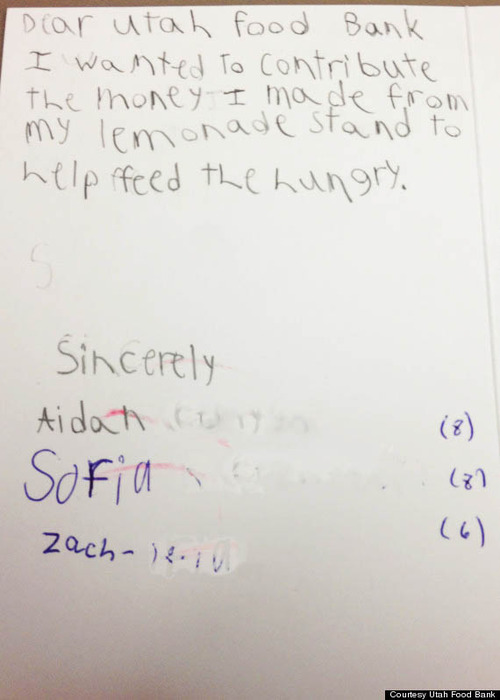 Dear Utah Food Bank
I wanted to contribute
the money I made from
my lemonade stand to
help feed the hungry.
Sincerely
Aidan (8)
Sofia (8)
Zach- (6)
Courtesy Utah Food Bank